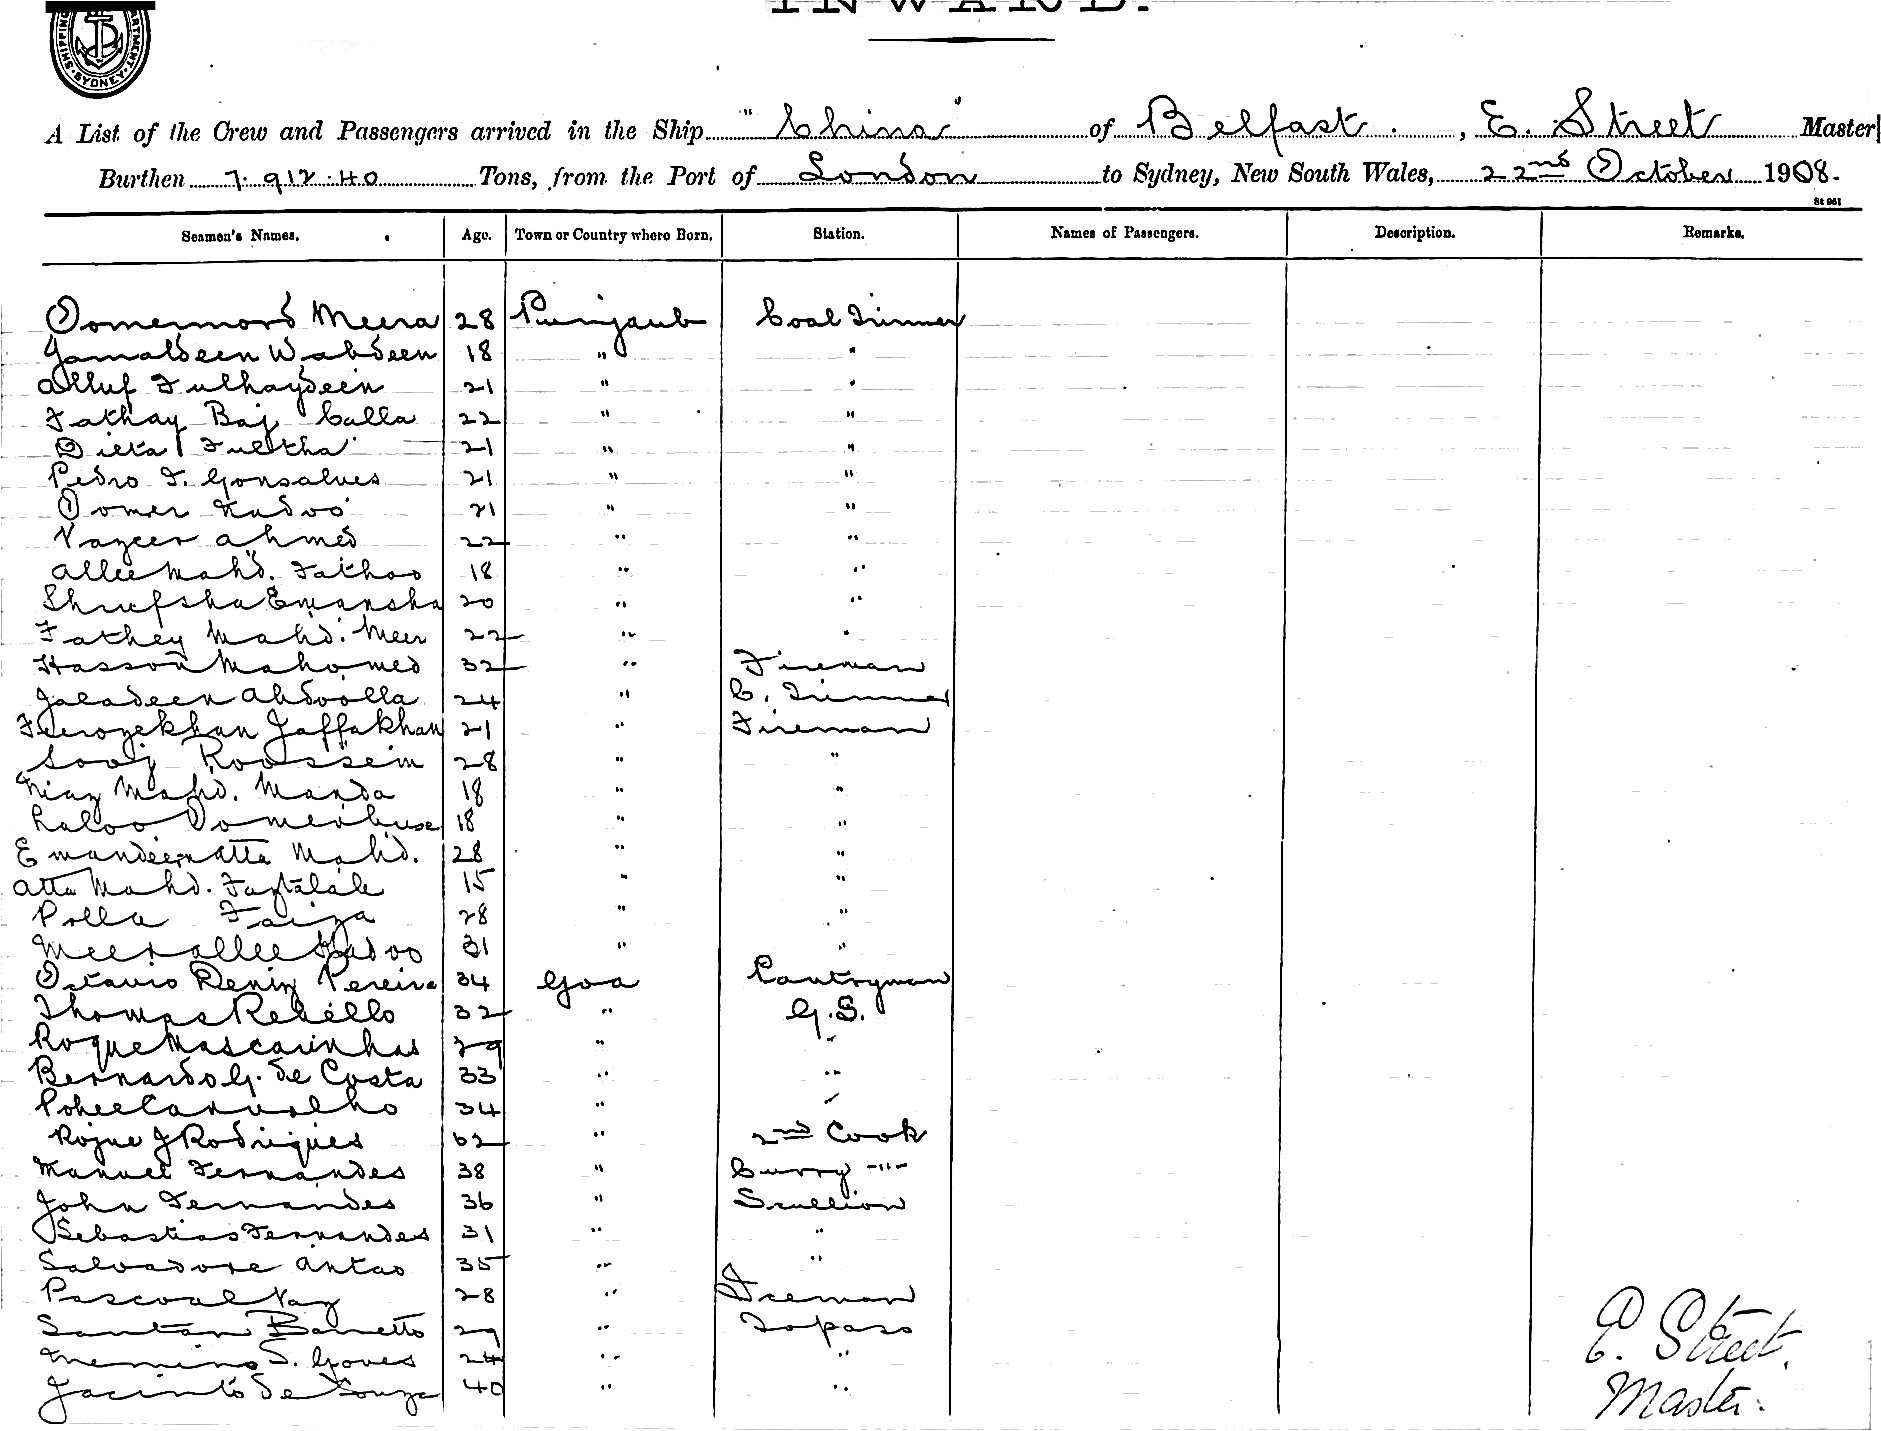 INWARD.
SHIPPING DEPARTMENT SYDNEY
A List of the Crew and Passengers arrived in the Ship "China" of Belfast, E. Street Master
Burthen 7.912.40 Tons, from the Port of London to Sydney, New South Wales, 22nd October 1908.
St 961
Seamen's Names. Age. Town or Country where Born. Station. Names of Passengers. Description. Remarks.
Oomermord Meera 28 Punjaub Coal Trimmer
Jamaldeen Wabdeen 18 " "
Alluf Fulhaydeen 21 " "
Fathay Baj Calla 22 " "
Ditta Fultha 21 " "
Pedro F. Gonsalves 21 " "
Oomer Kadoo 21 " "
Vazeer Ahmed 22 " "
Allee Mahd. Fathoo 18 " "
Shrufsha Emansha 20 " "
Fathey Mahd. Meer 22 " "
Hasson Mahomed 32 " Fireman
Jaladeen Abdoolla 24 " C. Trimmer
Ferozekhan Jaffakhan 21 " Fireman
Sooj Roossein 28 " "
Niaz Mahd. Manda 18 " "
Laloo Oomerbuse 18 " "
Emandeen Atta Mahd. 28 " "
Atta Mahd. 15 " "
Polla Faiza 28 " "
Meerallee Kadoo 31 " "
Octavio Deniz Pereira 34 Goa Pantryman
Thomas Rebello 32 " G.S.
Roque Mascarinhas 29 " "
Bernardo G. de Costa 33 " "
Carvalho 34 " "
Roque J Rodrigues 62 " 2nd Cook
Manuel Fernandes 38 " Curry "
John Fernandes 36 " Scullion
Sebastiao Fernandes 31 " "
Salvadore Antao 35 " "
Pascoal Vaz 28 " Iceman
Santan Barretto 29 " Topass
S. Goves 24 " "
Jacinto de Souza 40 " "
E. Street.
Master.